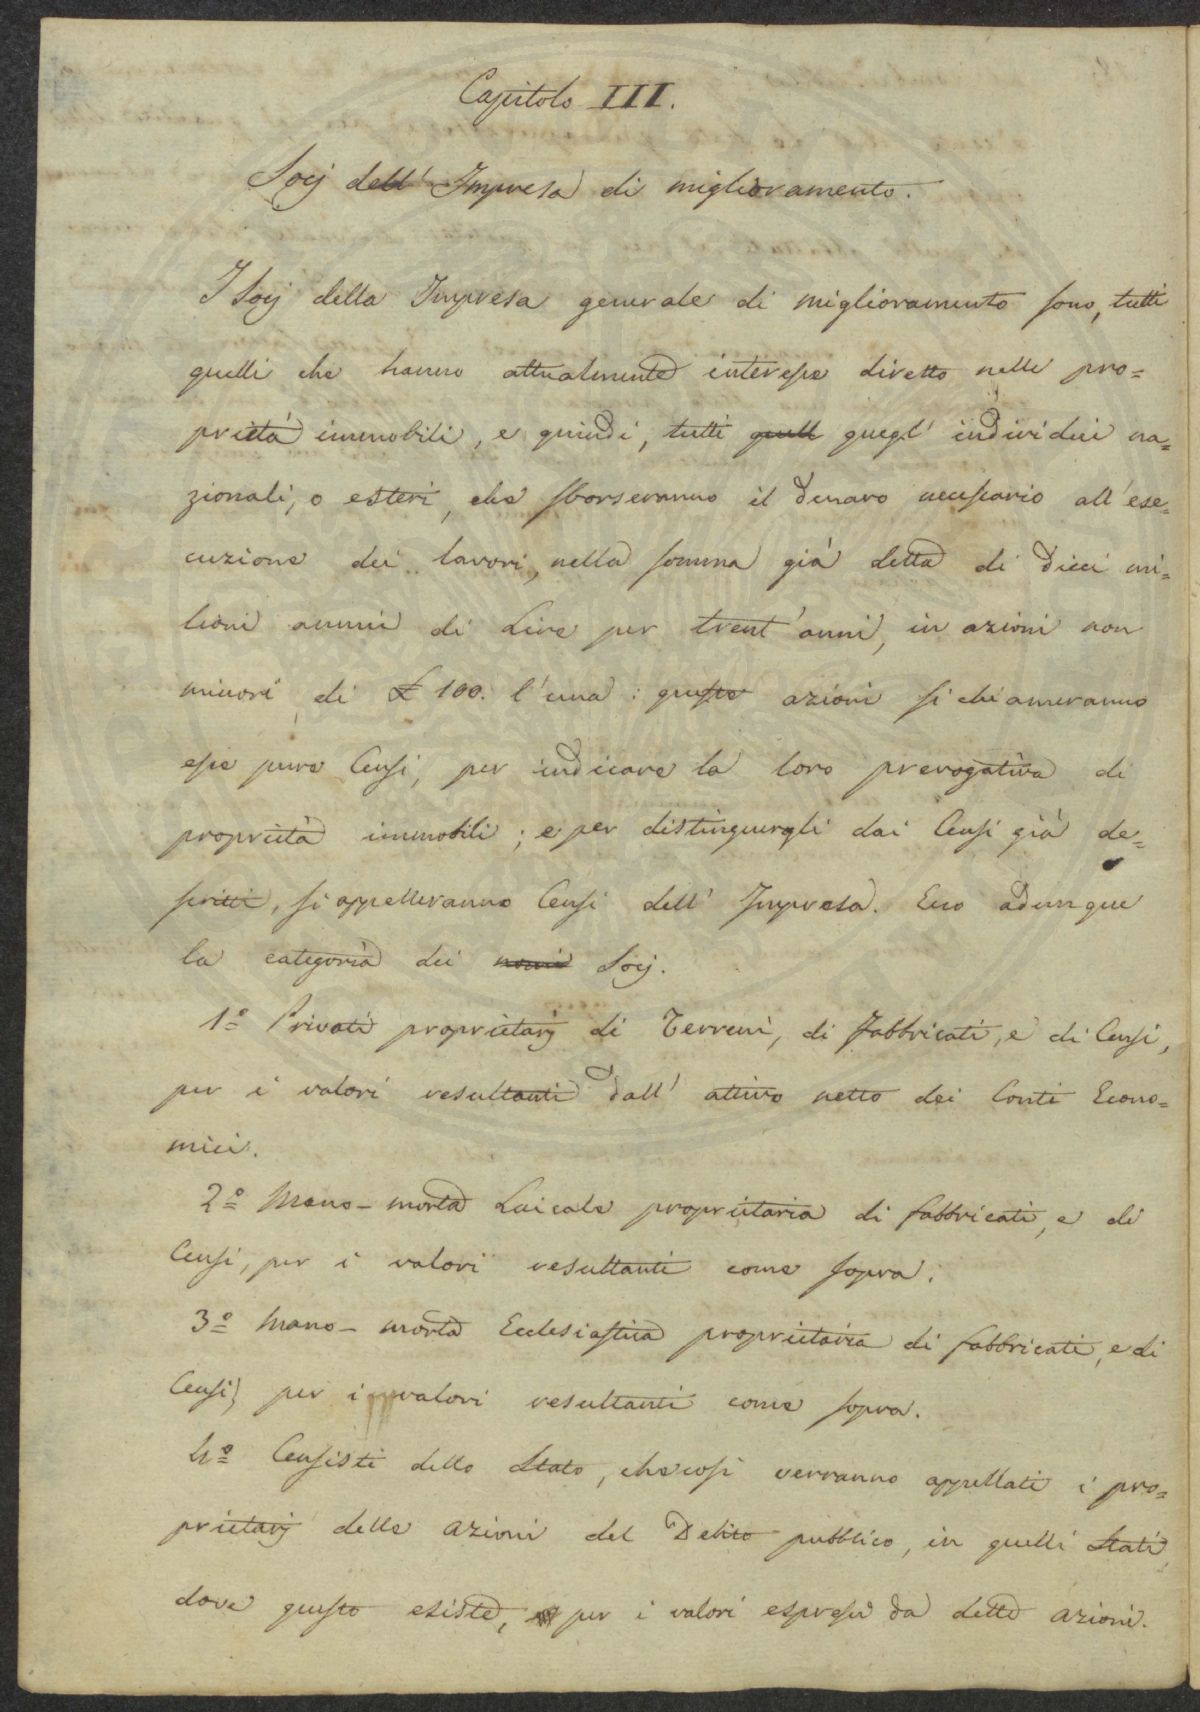 Capitolo III.
Socj dell' Impresa di miglioramento.
I Socj della Impresa generale di miglioramento sono, tutti
quelli che hanno attualmente interesse diretto nelle pro=
prietà immobili, e quindi, tutti quell quegl' individui na=
zionali, o esteri, che sborseranno il denaro necessario all' ese=
cuzione dei lavori, nella somma già detta di Dieci mi=
lioni annui di Lire per trent' anni, in azioni non
minori di £ 100. l'una: queste azioni si chiameranno
esse pure Censi, per indicare la loro prerogativa di
proprietà immobili; e per distinguergli dai Censi già de=
scritti, si appelleranno Censi dell' Impresa. Ecco adunque
la categoria dei nuovi Socj.
1º Privati proprietarj di Terreni, di fabbricati, e di Censi,
per i valori resultanti dall' attivo netto dei Conti Econo=
mici.
2º Mano-morta Laicale proprietaria di fabbricati, e di
Censi, per i valori resultanti come sopra.
3º Mano-morta Ecclesiastica proprietaria di fabbricati, e di
Censi, per i valori resultanti come sopra.
4º Censisti dello Stato, che così verranno appellati i pro=
prietarj delle azioni del Debito pubblico, in quelli Stati,
dove questo esiste, per i valori espressi da dette azioni.